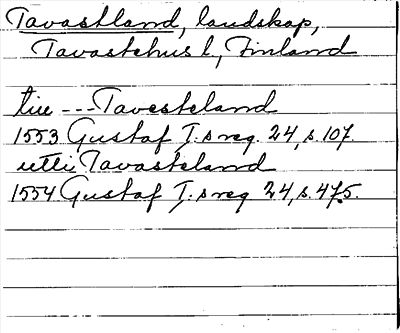 Tavastland, landskap,
Tavastehus l, Finland
tiu --- Tavesteland
1553 Gustaf I:s reg. 24, s. 107.
utti Tavasteland
1554 Gustaf I:s reg 24, s. 475.